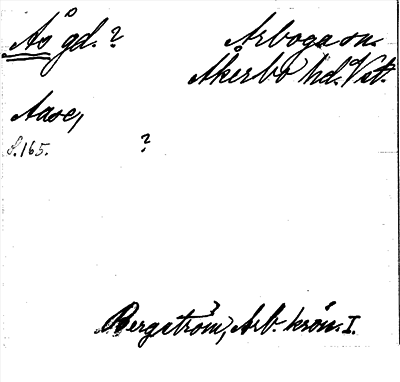 Ås gd. ?
Arboga sn.
Åkerbo hd. Vstt.
Aase,
S. 165. ?
Bergström, Arb. krön. I.